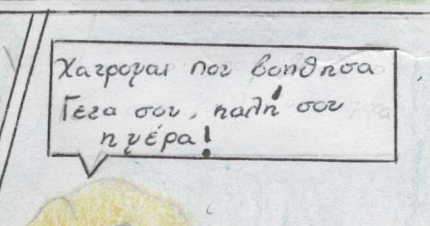 Χαιρομαι που βοηθησα
Γεια σου, καλή σου
ημέρα!